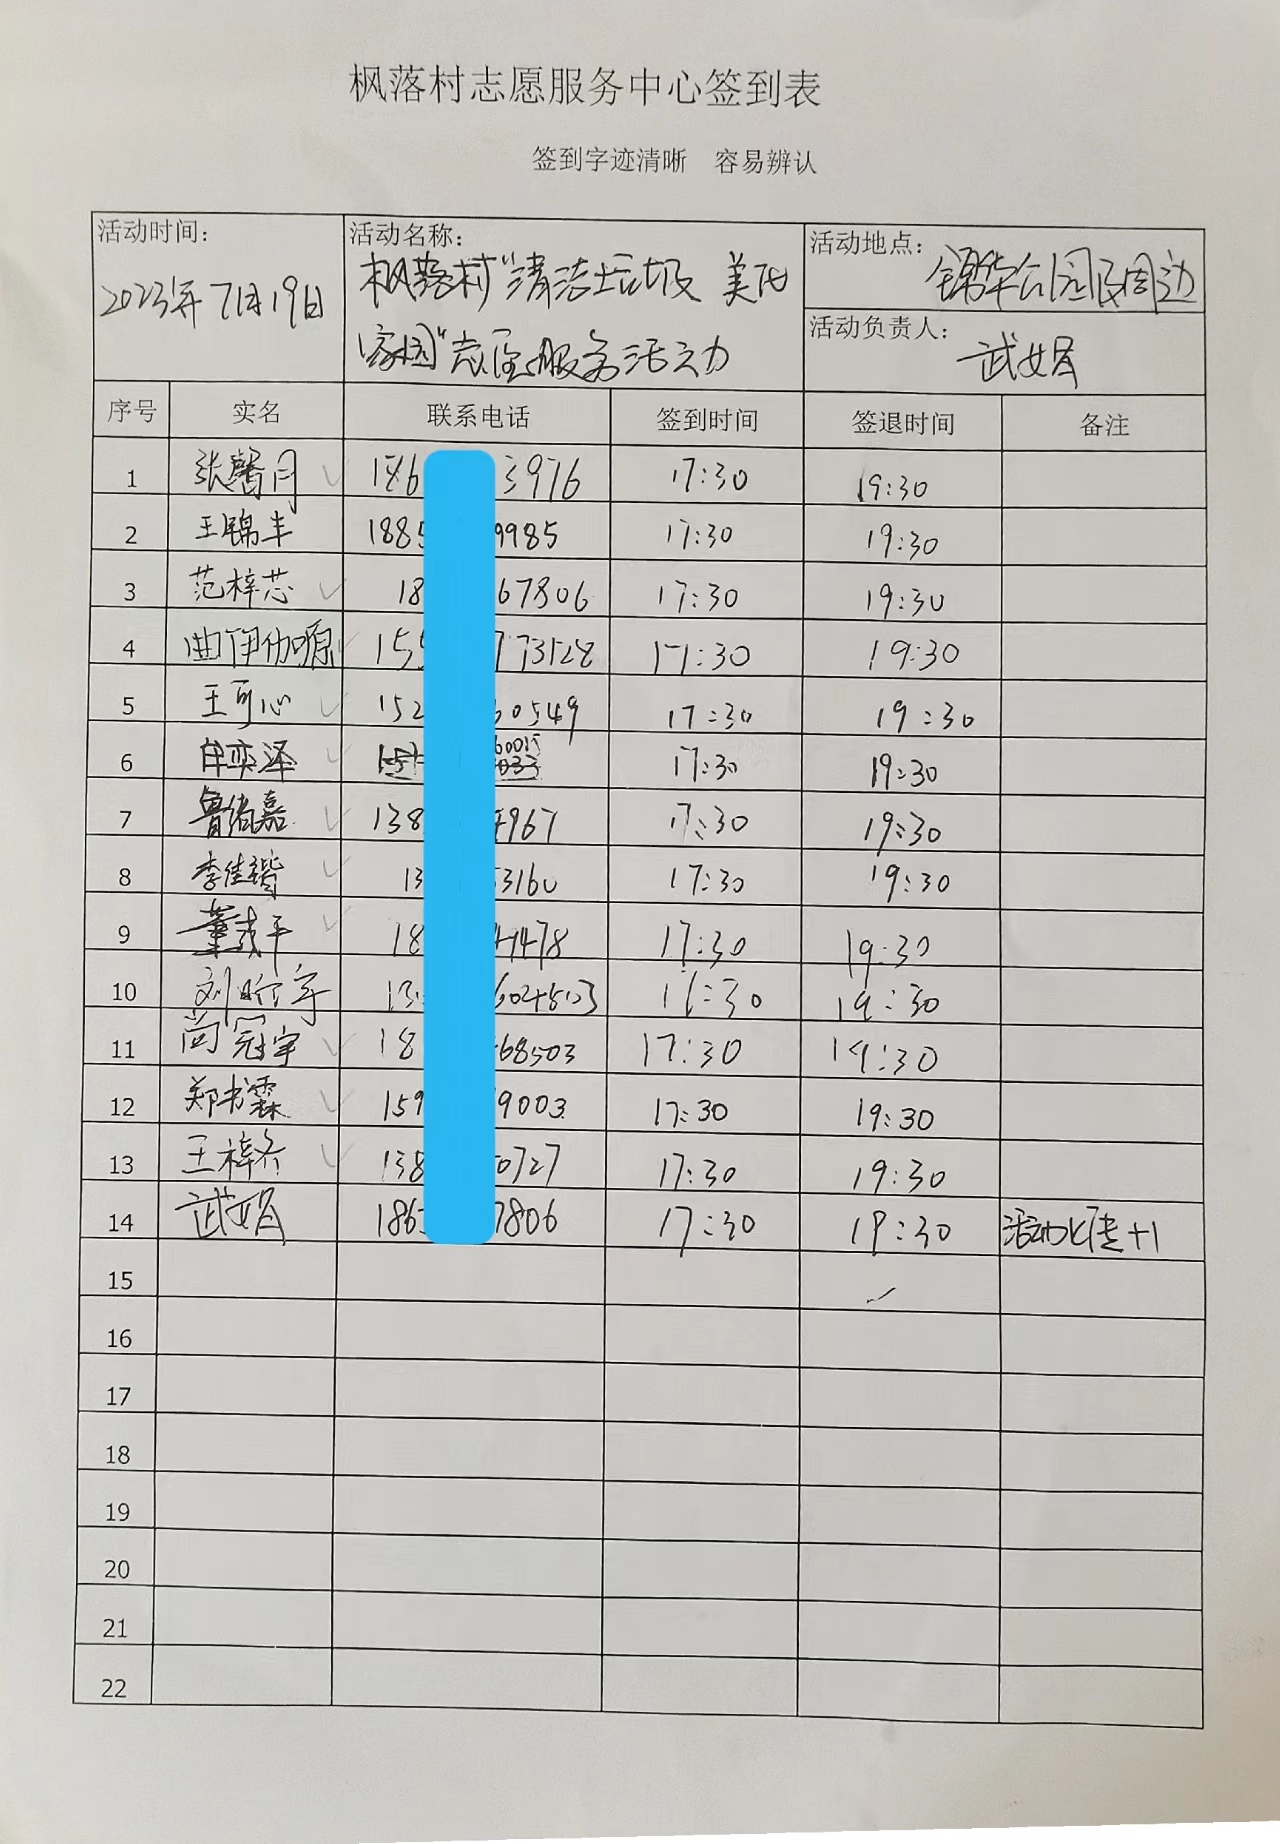 枫落村志愿服务中心签到表
签到字迹清晰 容易辨认
活动时间: 2023年7月19日
活动名称: 枫落村"清洁垃圾 美化
家园"志愿服务活动
活动地点: 锦华公园及周边
活动负责人: 武娟
序号 实名 联系电话 签到时间 签退时间 备注
1 张馨月 186 3976 17:30 19:30
2 王锦丰 1885 9985 17:30 19:30
3 范梓芯 18 67806 17:30 19:30
4 曲伊伽源 155 773128 17:30 19:30
5 王可心 152 60549 17:30 19:30
6 牟奕泽 17:30 19:30
7 鲁绪嘉 138 4967 17:30 19:30
8 李佳锴 13 53160 17:30 19:30
9 董 平 18 41478 17:30 19:30
10 刘昕宇 17:30 19:30
11 尚冠宇 18 68503 17:30 19:30
12 郑书霖 159 9003 17:30 19:30
13 王梓齐 138 0727 17:30 19:30
14 武娟 186 7806 17:30 19:30 活动 +1
15
16
17
18
19
20
21
22